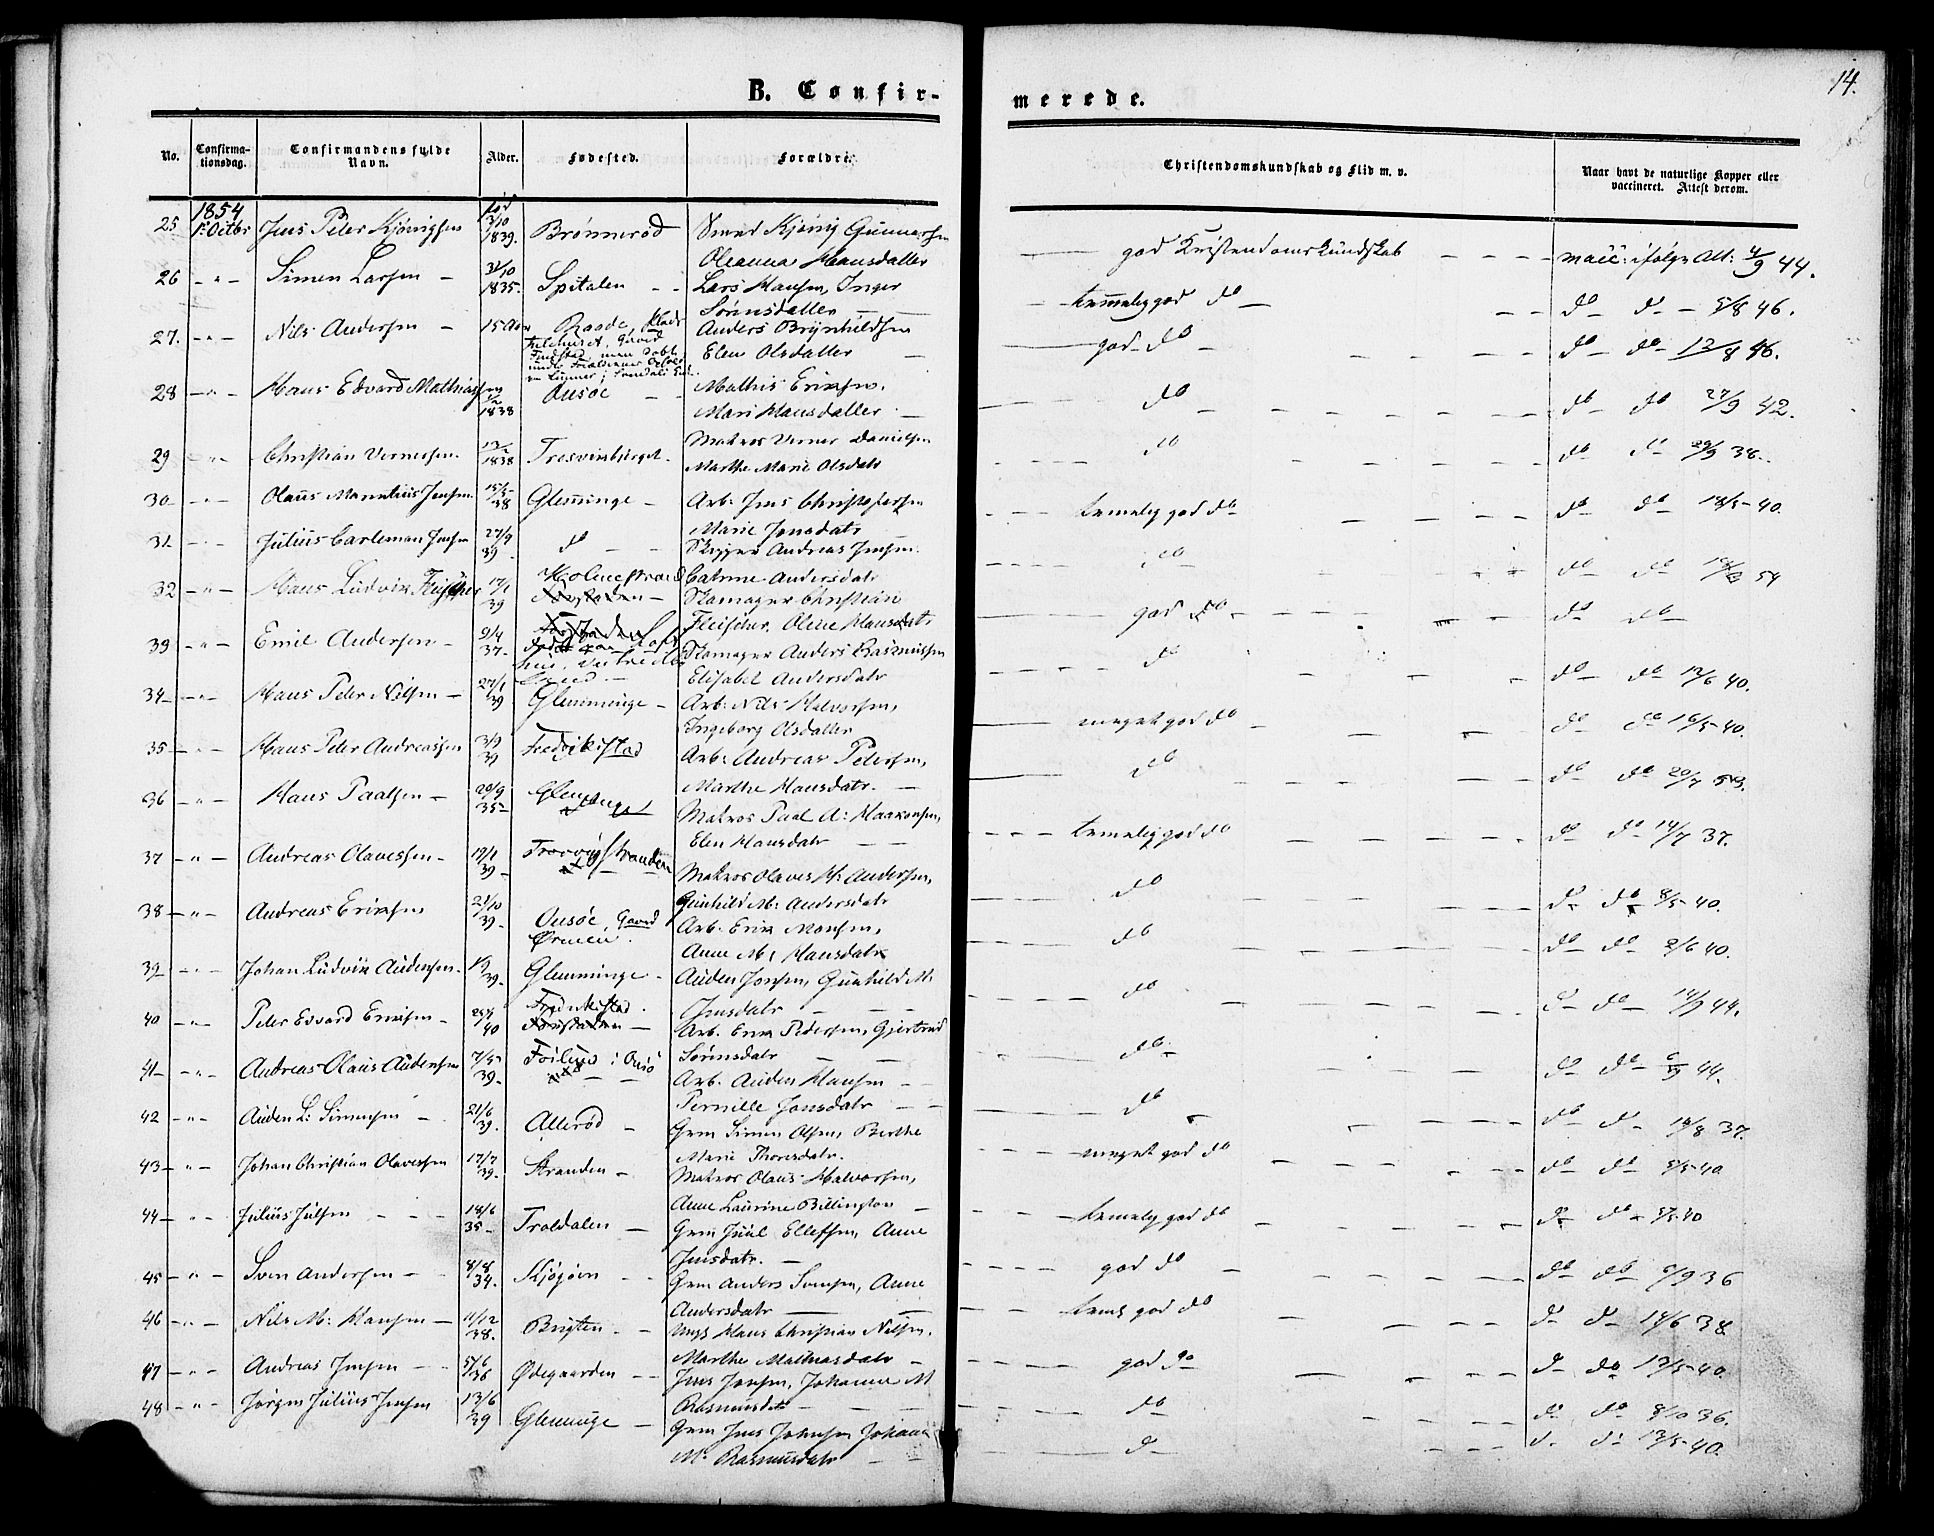 14.
B. Confir-
merede.
No.
Confirma-
tionsdag.
Confirmandens fulde
Navn.
Alder.
Fødested.
Forældre.
Christendomskundskab og Flid m. v.
Naar havt de naturlige Kopper eller
vaccineret. Attest derom.
1854
25 1. Octbr Jens Peter 3/10 1839. Brønnerød Gunnarsen god Kristendomskundskab vacc: ifølge Att: 4/9 44.
Oleanna Hansdatter
26 - " - Simen Larsen - 31/10 1835. Spitalen - - Lars Hansen, Inger temmelig god do - do do - 5/8 46.
Sørensdatter
27. - " - Nils Andersen - 15 Raade, Anders Brynhildsen god do do - do - 12/8 46.
Elen Olsdatter
28 - " - Hans Edvard Mathiassen 1838 Onsøe - - Mathis Eriksen. do do - do 27/9 42.
Mari Hansdatter -
29 - " - Christian Vernersen. 1838 Matros Verner Danielsen do do - do 29/9 38.
Marthe Marie Olsdatr
30 - " - Olaus Jensen. 15/5 38 Glemminge - Arb: Jens Christophersen temelig god do do do - 18/5 - 40.
Marie Jensdatr
31 - " - Julius Carleman Jensen 27/9 39 do - - Skipper Andreas Jensen. do do do 54
Catrine Andersdatr
32 - " - Hans Ludvik Fleischer 17/1 39 Holmestrand Skomager Christian god do do do -
Fleischer. Oline Hansdatr
33 - " - Emil Andersen - 9/4 37 - Skomager Anders Rasmussen do do do 12/6 40.
Elisabet Andersdatr
34 - " - Hans Peter Nilsen - 27/1 39 Glemminge - Arb: Nils Halvorsen, meget god do do do 16/5 - 40.
Ingeborg Olsdatter
35 - " - Hans Peter Andreassen 3/9 39 Fredrikstad Arb: Andreas Petersen, do do do 20/7 53.
Marthe Hansdatr. -
36 - " - Hans Paalsen - 20/9 35 - Matros Paal A: Haakonsen, temelig god do do do 14/7 37.
Elen Hansdatr - -
37 - " - Andreas Olavessen - 19/1 39 - Matros Olaves H: Andersen, do do - do 8/5 - 40.
Gunhild M: Andersdatr
38 - " - Andreas Eriksen 21/10 39. Onsøe, Gaard Arb. Erik Monsen, do do - do 2/6 40.
Ørmen. Anne M: Hansdatr
39 - " - Johan Ludvik Audensen. 39. Glemminge - Auden Jonsen, Gunhild M: do do - do - 14/9 44.
Jensdatr - - -
40 - " - Peter Edvard Eriksen - 40 Fredrikstad. Arb. Erik Pedersen, Gjertrud do do - do - 44.
Sørensdatr - -
41 - " - Andreas Olaus Audensen 7/5 39. i Onsø Arb. Auden Hansen - - do do do - 18/8 37.
Pernille Jonsdatr - -
42 - " - Auden L: Simensen - 21/6 39. Allerød - Grm Simen Olsen, Berthe meget god do do do 5/5 - 40
Marie Thoresdatr.
43 - " - Johan Christian Olavessen 17/7 39. Stranden - Matros Olaus Halvorsen, temelig god do do do - 5/5 - 40
Anne Laurine Billington -
44 - " - Julius Julsen - - - 18/6 35 - Troldalen - Grm Juul Ellefsen, Anne god do do do 9/9 36
Jensdatr. -
45 - " - Sven Andersen - - 8/8 34. Grm Anders Svensen, Anne god do do do - 14/6 38.
Andersdatr -
46 - " - Nils M: Hansen - 11/12 38. - Hans Christian Nilsen. god do do do 13/5 - 40.
Marthe Mathiasdatr -
47 - " - Andreas Jensen - - 5/6 36 Ødegaarden - - Jens Jensen, Johanne M do do do 8/10 36.
Rasmusdatr - - -
48 - " - Jørgen Julius Jensen 13/6 39 Glemminge - Grm Jens Johnsen Johanne do do do 13/5 - 40.
M: Rasmusdatr - -